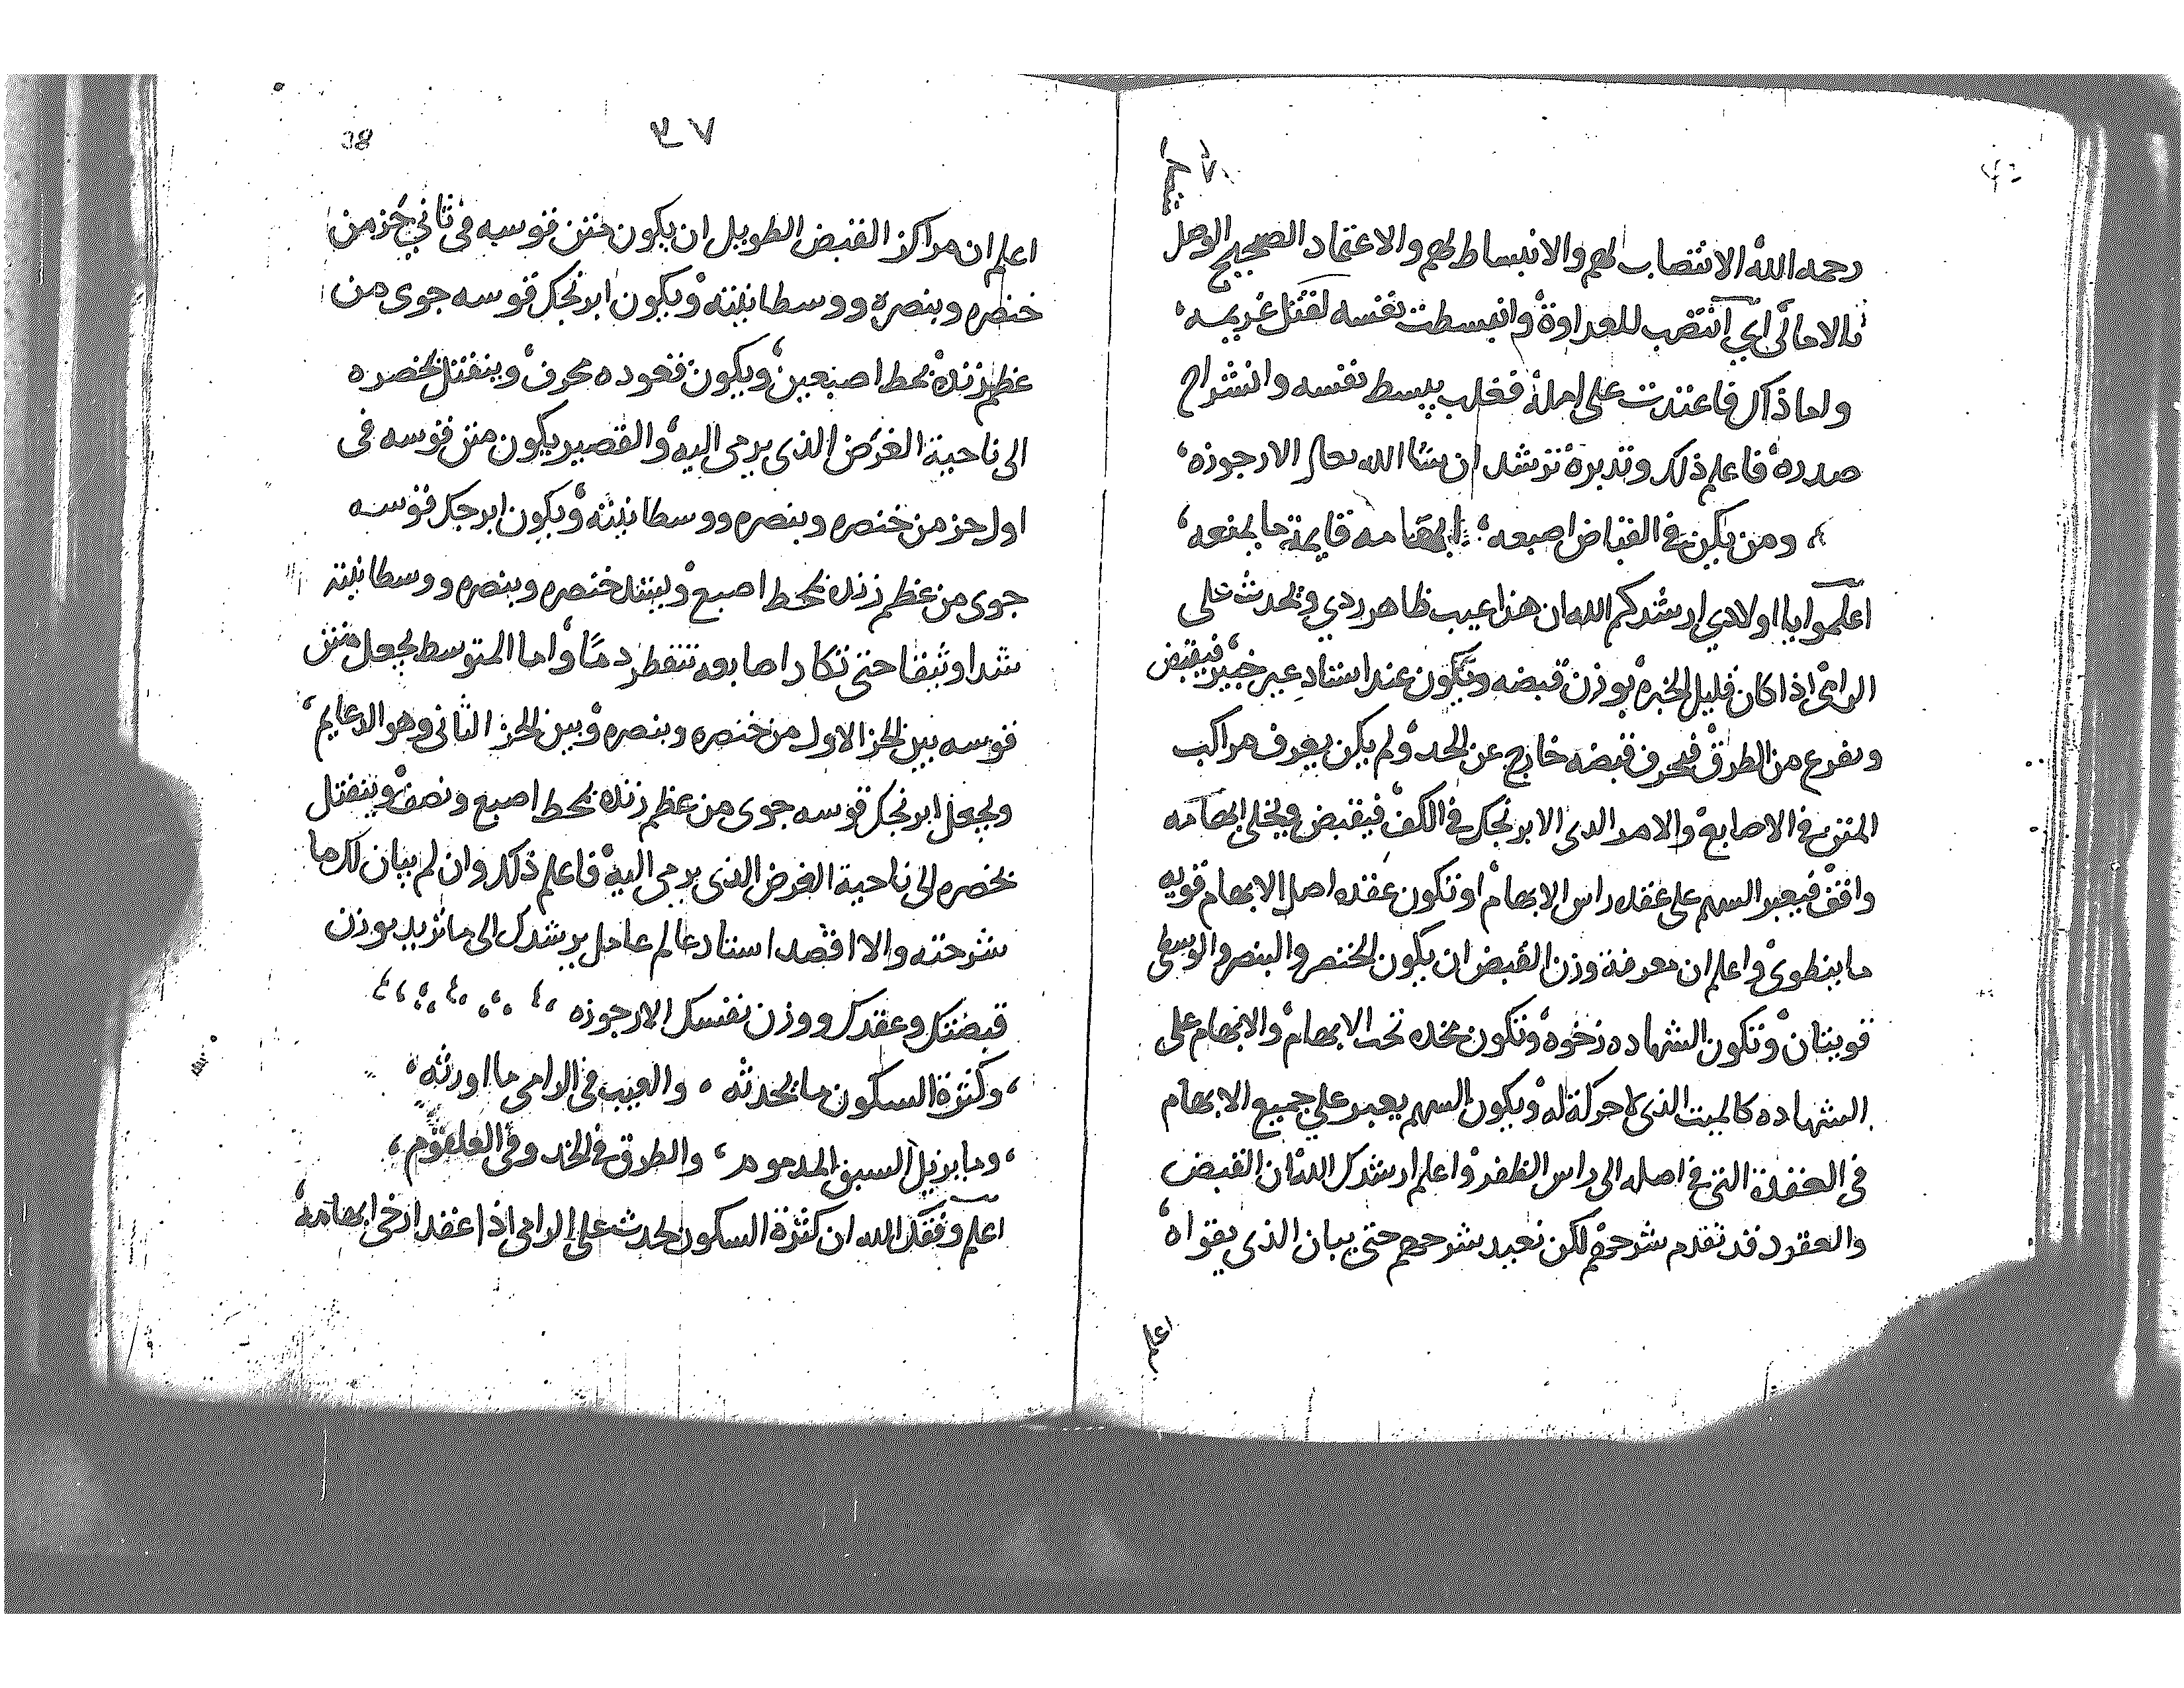 رحمه الله الانتصاب لهم والانبساط لهم والاعتماد الصحيح الوصل
بالاماني اي انتصب للعداوة وانبسطت نفسه لقتل غريمه
واما ذاك فاعتدت على امله فغلب ببسط نفسه وانشراح
صدره فاعلم ذلك وتدبره ترشد ان شا الله تعالى الارجوزه
ومن يكن في القباض اصبعه ابهامه قايمة ما يمنعه
اعلموا يا اولادي ارشدكم الله ان هذا عيب ظاهر ردي ويحدث على
الرامي اذا كان قليل الخبره بوزن قبضه ويكون عند استاد غير خبير فيقبض
ويفرع من الطرق فيحرف قبضه خارج عن الحد ولم يكن يعرف مراكب
المتن في الاصابع والامر الدي الابرنجك في الكف فيقبض ويخلي ابهامه
واقف فيعبر السهم على عقده راس الابهام او تكون عقده اصل الابهام قويه
ما ينطوى واعلم ان معرفة وزن القبض ان يكون الخنصر والبنصر والوسطى
قويتان وتكون الشهاده رخوه وتكون مخده تحت الابهام والابهام على
الشهاده كالميت الذي لا حركة له ويكون السهم يعبر علي جميع الابهام
في العقدة التي في اصله الى راس الظفر واعلم ارشدك الله ان القبض
والعقود قد تقدم شرحهم لكن نعيد شرحهم حتى يبان الذي يقراه
اعلم
٣٧
38
اعلم ان مراكز القبض الطويل ان يكون متن قوسه في ثاني حز من
خنصره وبنصره ووسطانيته ويكون ابرنجك قوسه جوى من
عظم زنده بحط اصبعين ويكون قعوده محرف وينفتل بخصره
الى ناحية الغرض الذى يرمى اليه والقصير يكون متن قوسه فى
اول حز من خنصره وبنصره ووسطانيته ويكون ابرنجك قوسه
جوى من عظم زنده بحط اصبع ويشد خنصره وبنصره ووسطانيته
شدا وثيقا حتى تكاد اصابعه تنفطر دمًا واما المتوسط يجعل متن
قوسه بين الحز الاول من خنصره وبنصره وبين الحز الثانى وهو الدعايم
ويجعل ابرنجك قوسه جوى من عظم زنده بحط اصبع ونصف وينفتل
بخصره الى ناحية الغرض الذى يرمى اليه فاعلم ذلك وان لم يبان لك ما
شرحته والا اقصد استاد عالم عامل يرشدك الى ما تريد بوزن
قبضتك وعقدك ووزن نفسك الارجوزه
وكثرة السكون ما يحدثه والعيب فى الرامى ما اورثه
وما يزيل السبق المدموم والطرق في الخد وفي الحلقوم
اعلم وفقك الله ان كثرة السكون يحدث على الرامى اذا عقد ارخى ابهامه